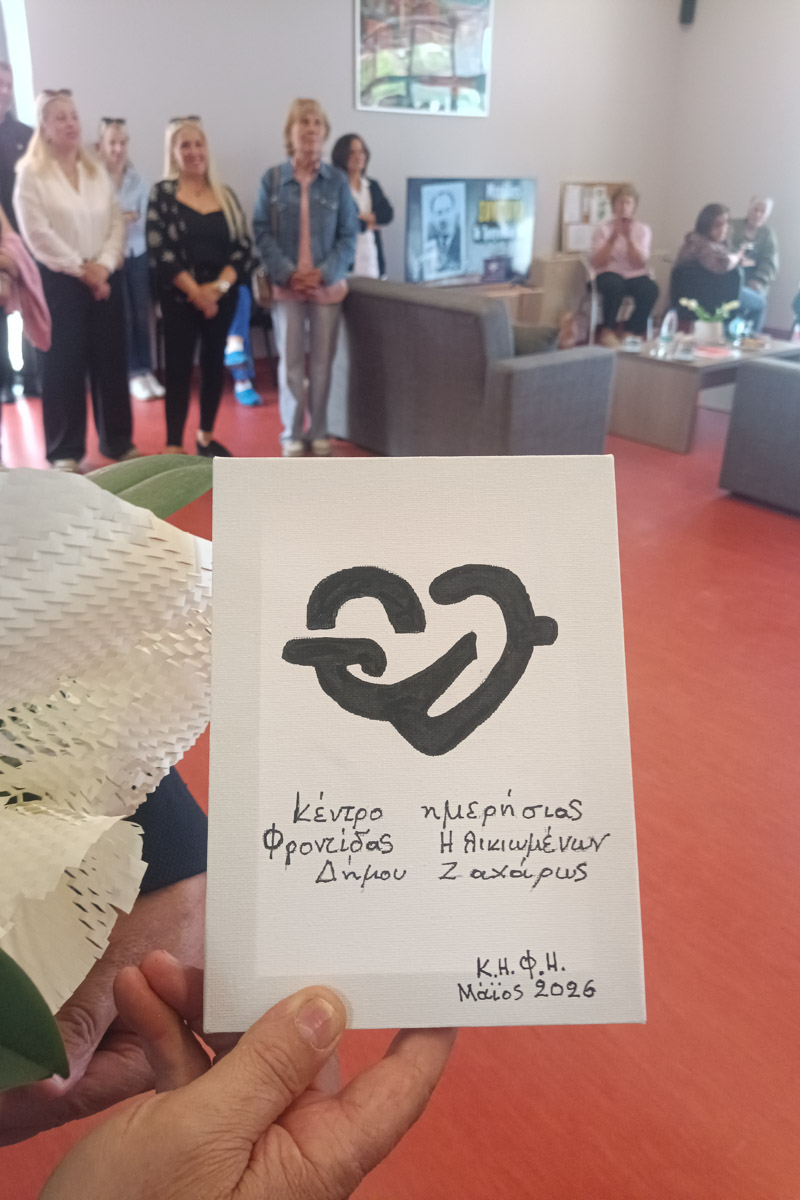 Κέντρο ημερήσιας
Φροντίδας Ηλικιωμένων
Δήμου Ζαχάρως
Κ.Η.Φ.Η.
Μάϊος 2026